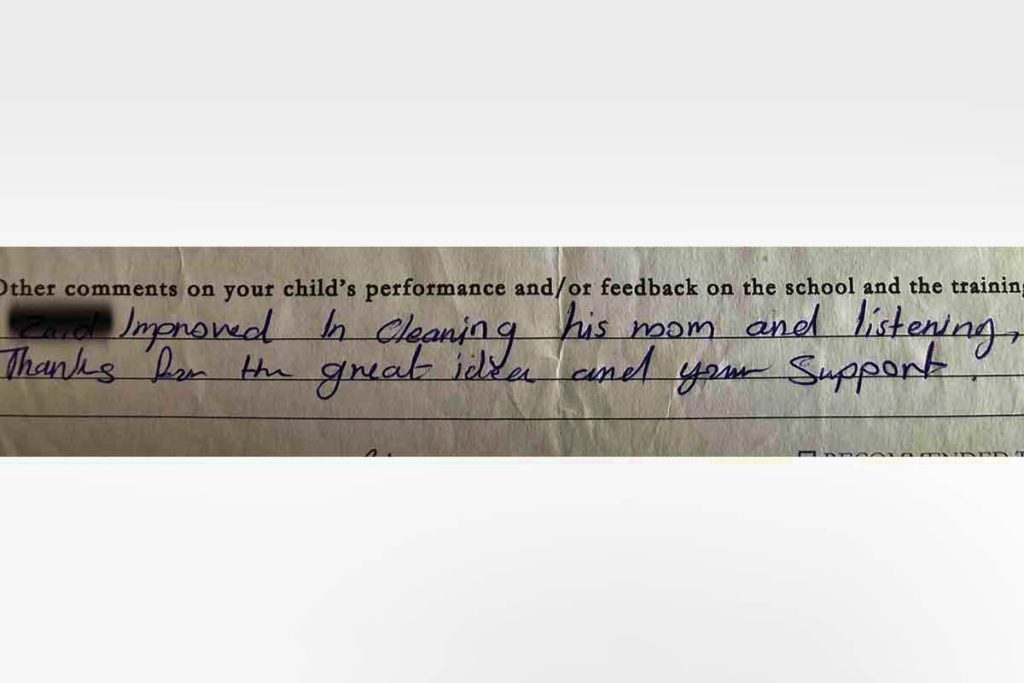 Other comments on your child's performance and/or feedback on the school and the training
Improved In Cleaning his room and listening,
Thanks for the great idea and your Support.